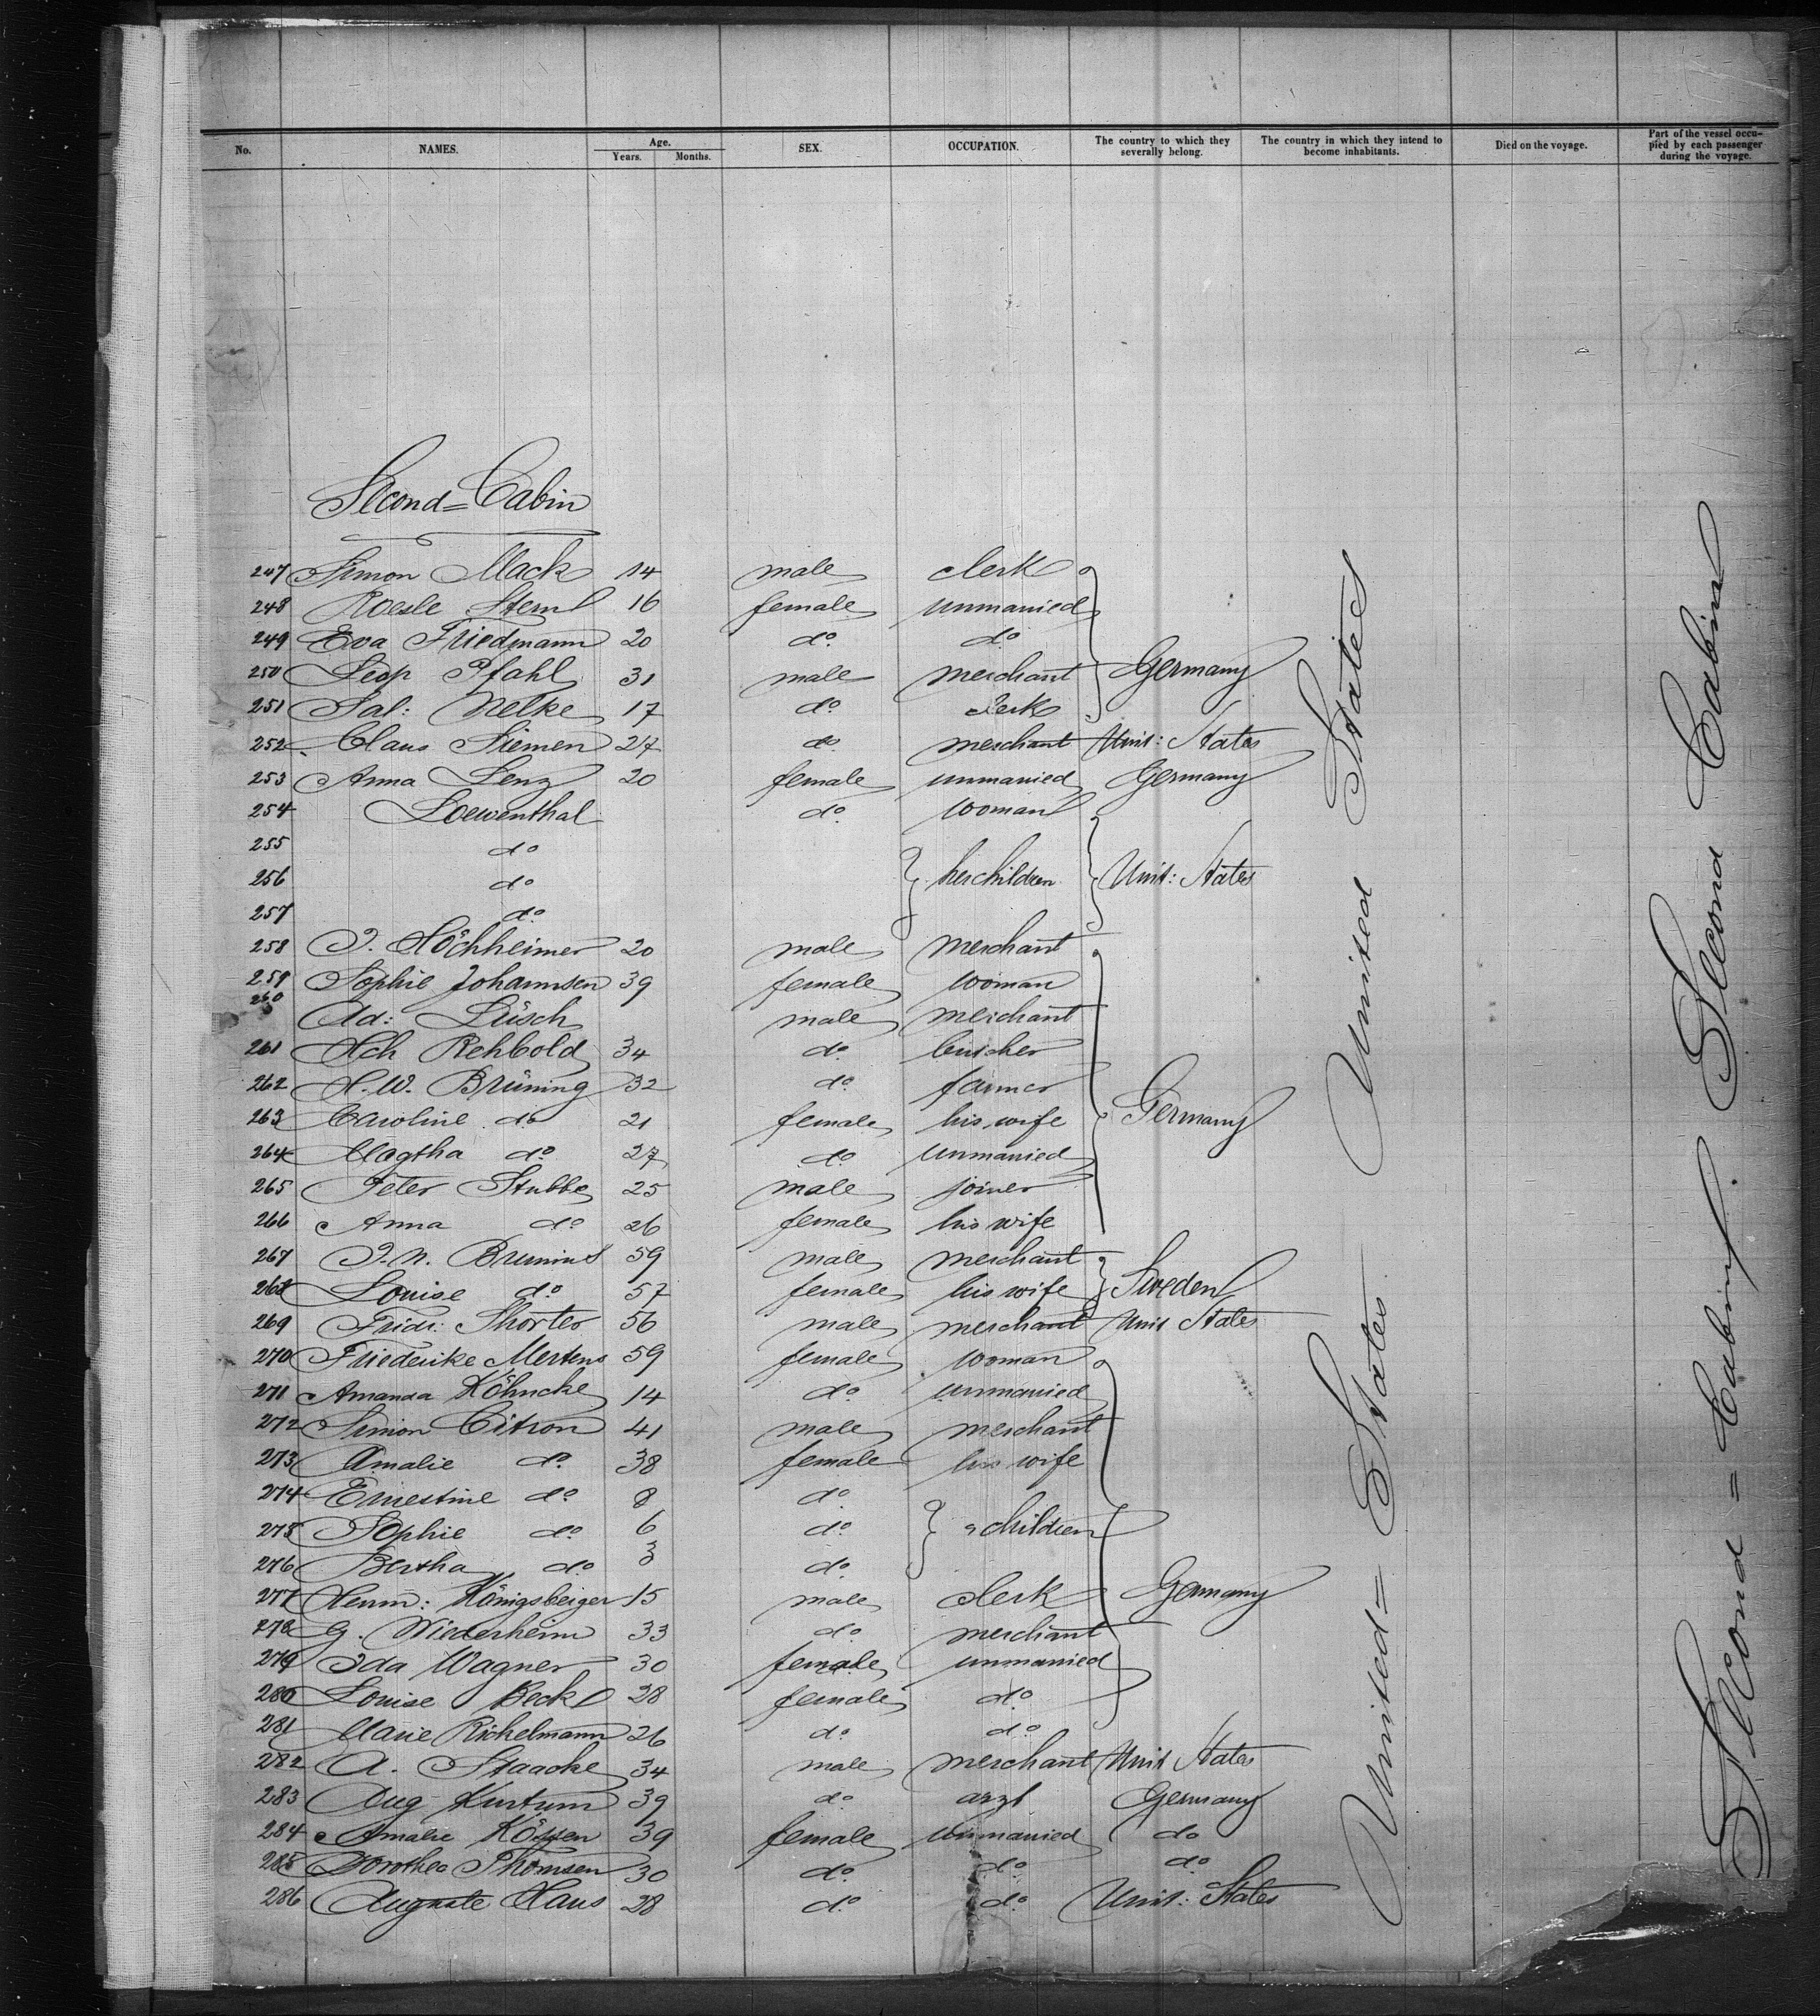 No. NAMES. Age. Years. Months. SEX. OCCUPATION. The country to which they severally belong. The country in which they intend to become inhabitants. Died on the voyage. Part of the vessel occupied by each passenger during the voyage.
Second=Cabin
247 Simon Mack 14 male clerk
248 Roesle Stern 16 female unmarried
249 Eva Friedmann 20 do. do.
250 Leop Pfahl 31 male merchant Germany
251 Sal: Nelke 17 do. clerk
252 Claus Siemen 27 do merchant Unit: States
253 Anna Lenz 20 female unmarried Germany
254 Loewenthal do. woman
255 do
256 do. her children Unit: States
257 do.
258 J. Höchheimer 20 male merchant
259 Sophie Johannsen 39 female woman
260 Ad: Lüsch male merchant
261 Hch Rehbold 34 do. butcher
262 H. W. Brüning 32 do. farmer
263 Caroline do. 21 female his wife Germany
264 Magtha do. 27 do. unmarried
265 Peter Stubbe 25 male joiner
266 Anna do. 26 female his wife
267 J. N. Brunius 59 male merchant
268 Louise do. 57 female his wife Sweden
269 Fridr: Shorter 56 male merchant Unit States
270 Friederike Mertens 59 female woman
271 Amanda Köhncke 14 do. unmarried
272 Simon Citron 41 male merchant
273 Amalie do. 38 female his wife
274 Ernestine do. 8 do.
275 Sophie do. 6 do. children
276 Bertha do. 3 do.
277 Herm: Königsberger 15 male clerk Germany
278 G. Wiederheim 33 do. merchant
279 Ida Wagner 30 female unmarried
280 Louise Beck 28 female do.
281 Marie Richelmann 26 do. do.
282 A. Staacke 34 male merchant Unit States
283 Aug Kurtum 39 do. arzt Germany
284 Amalie 39 female unmarried do.
285 Dorothea Thomsen 30 do. do. do.
286 Auguste Haus 28 do. do. Unit: States
United = States United States
Second = Cabin Second Cabin